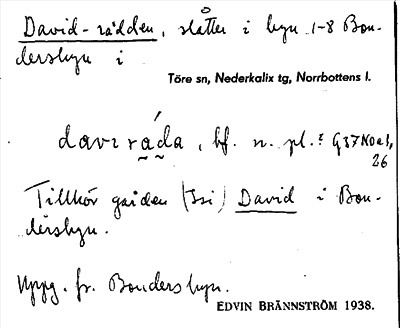 David-rådden, slåtter i byn 1-8 Bon-
dersbyn i
Töre sn, Nederkalix tg, Norrbottens l.
bf. n. pl.
26
Tillhör gården (Isi) David i Bon-
dersbyn.
Uppg. fr. Bondersbyn.
EDVIN BRÄNNSTRÖM 1938.